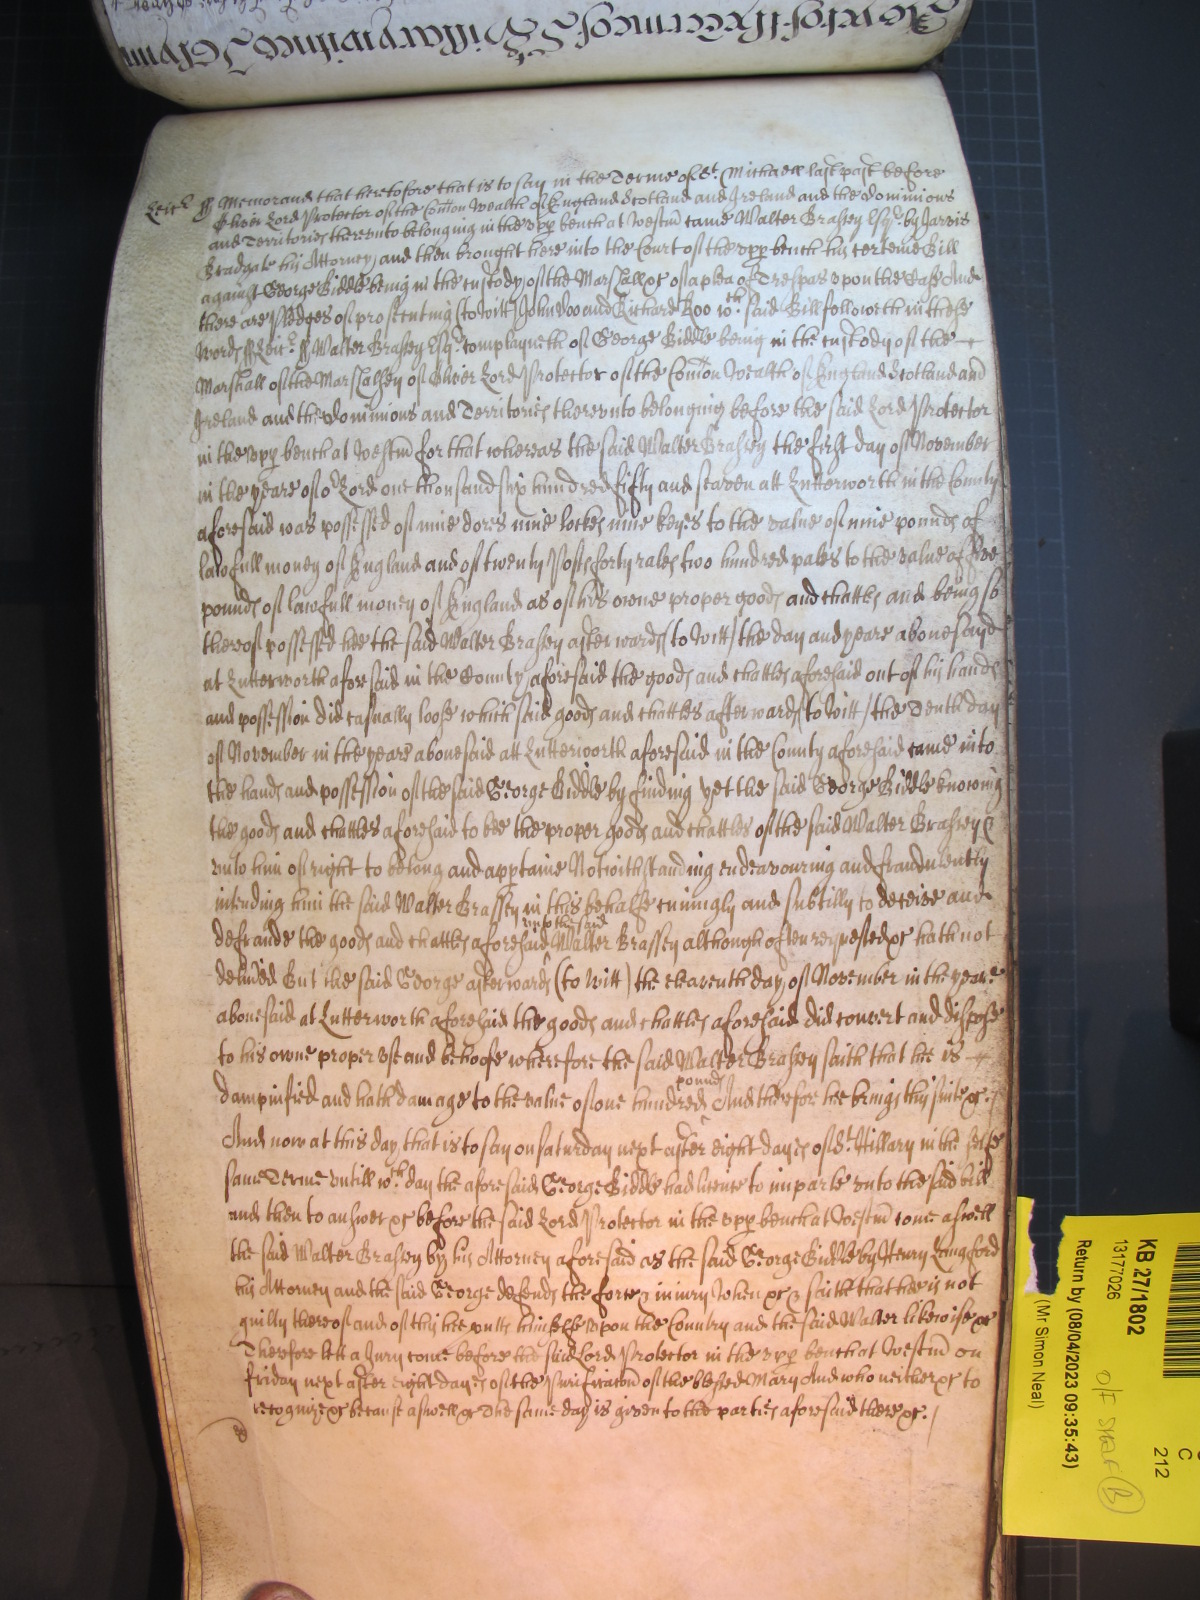 Leic ff Memorand that heretofore that is to say in the Terme of St. Michaell last past before
Oliver Lord Protector of the Com̄on Wealth of England Scotland and Ireland and the Dominions
and Territories thereunto belonging in the upp bench at Westm̄ came Walter Brassey Esqr. by Jarvis
Bradgate his Attorney and then brought here into the Court of the upp bench his certeine Bill
against George Biddle being in the custody of the Marshall &c of a plea of Trespas upon the Case And
there are Pledges of prosecuting (to witt) John Doo and Richard Roo wch. said Bill followeth in these
words ff Leic. ff Walter Brassey Esqr. complayneth of George Biddle being in the custody of the
Marshall of the Marshalsey of Oliver Lord Protector of the Com̄on Wealth of England Scotland and
Ireland and the Dominions and Territories thereunto belonging before the said Lord Protector
in the upp bench at Westm̄ for that whereas the said Walter Brassey the first day of November
in the yeare of or Lord one thousand six hundred fifty and seaven att Lutterworth in the County
aforesaid was possessed of nine dores nine lockes nine keyes to the value of nine pounds of
lawfull money of England and of twenty Posts forty rales two hundred pales to the value of five
pounds of lawfull money of England as of his owne proper goods and chattles and being so
thereof possessed hee the said Walter Brassey afterwards (to witt) the day and yeare abovesaid
at Lutterworth aforesaid in the County aforesaid the goods and chattles aforesaid out of his hands
and possession did casually loose which said goods and chattles afterwards (to witt) the Tenth day
of November in the yeare abovesaid att Lutterworth aforesaid in the County aforesaid came into
the hands and possession of the said George Biddle by finding yet the said George Biddle knowing
the goods and chattles aforesaid to bee the proper goods and chattles of the said Walter Brassey &
unto him of right to belong and apptaine Notwithstanding endeavouring and fraudulently
intending him the said Walter Brassey in this behalfe cuningly and subtilly to deceive and
defraude the goods and chattles aforesaid unto the said Walter Brassey although often requested &c hath not
delivered But the said George afterwards (to witt) the eleaventh day of November in the yeare
abovesaid at Lutterworth aforesaid the goods and chattles aforesaid did convert and dispose
to his owne proper use and behoofe wherefore the said Walter Brassey saith that he is
dampnified and hath damage to the value of one hundred pounds And therefore hee brings this suite &c.
And now at this day that is to say on Saturday next after eight dayes of St. Hillary in the selfe
same Terme untill wch. day the aforesaid George Biddle had licence to imparle unto the said bill
and then to answer &c before the said Lord Protector in the upp bench at Westm̄ come aswell
the said Walter Brassey by his Attorney aforesaid as the said George Biddle by Henry Langford
his Attorney and the said George defends the force & iniury when &c & saith that hee is not
guilty thereof and of this he putts himselfe upon the Country and the said Walter likewise &c
Therefore lett a Jury come before the said Lord Protector in the upp bench at Westm̄ on
Friday next after eight dayes of the Purificacon of the blessed Mary And who neither &c to
recognize &c because aswell &c The same day is given to the parties aforesaid there &c.
KB 27/1802
13177026
Return by (08/04/2023 09:35:43)
(Mr Simon Neal)
O/F
C
212